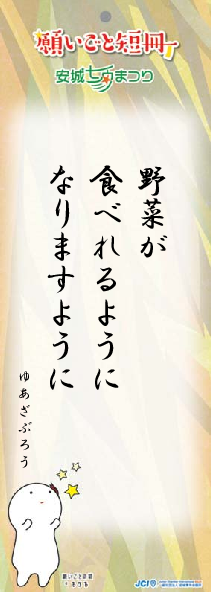 願いごと短冊
安城七夕まつり
野菜が
食べれるように
なりますように
ゆあざぶろう
願いごと短冊
JCI